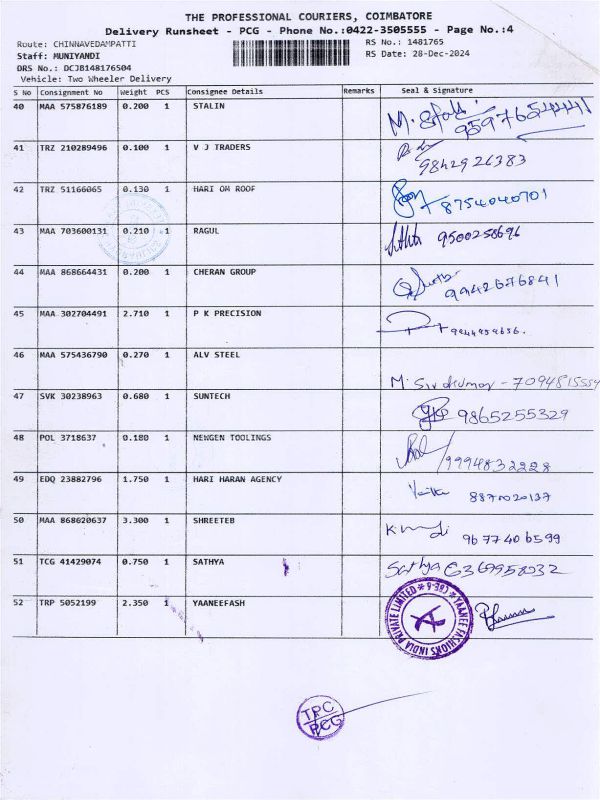 THE PROFESSIONAL COURIERS, COIMBATORE
Delivery Runsheet - PCG - Phone No.:0422-3505555 - Page No.:4
Route: CHINNAVEDAMPATTI RS No.: 1481765
Staff: MUNIYANDI RS Date: 28-Dec-2024
DRS No.: DCJB148176504
Vehicle: Two Wheeler Delivery
S No Consignment No Weight PCS Consignee Details Remarks Seal & Signature
40 MAA 575876189 0.200 1 STALIN
41 TRZ 210289496 0.100 1 V J TRADERS 9842926383
42 TRZ 51166065 0.130 1 HARI OM ROOF 8754040701
43 MAA 703600131 0.210 1 RAGUL 9500258696
44 MAA 868664431 0.200 1 CHERAN GROUP 9942676841
45 MAA 302704491 2.710 1 P K PRECISION
46 MAA 575436790 0.270 1 ALV STEEL M. Sivakumar - 7094815554
47 SVK 30238963 0.680 1 SUNTECH 9865255329
48 POL 3718637 0.180 1 NEWGEN TOOLINGS 9994832228
49 EDQ 23882796 1.750 1 HARI HARAN AGENCY 8870020137
50 MAA 868620637 3.300 1 SHREETEB 9677406599
51 TCG 41429074 0.750 1 SATHYA Sathya 6369958032
52 TRP 5052199 2.350 1 YAANEEFASH
YAANEE FASHIONS INDIA PRIVATE LIMITED * CBE-6 *
TPC
PCG